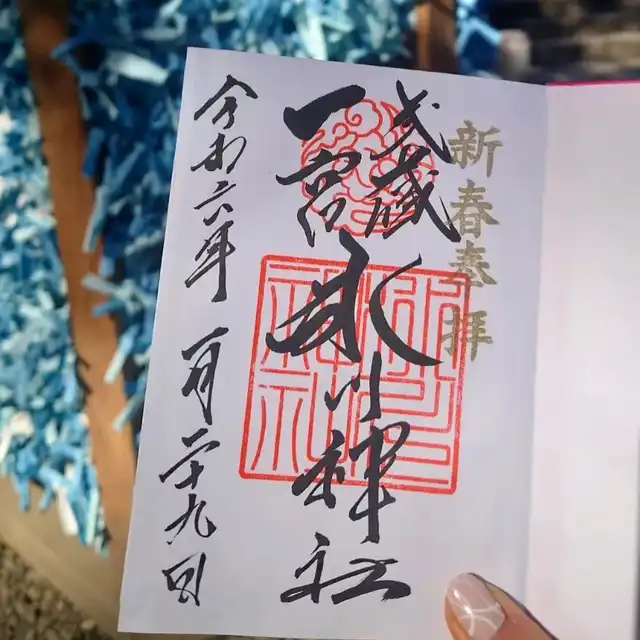 新春奉拝
武蔵
一宮
氷川神社
令和六年一月二十九日